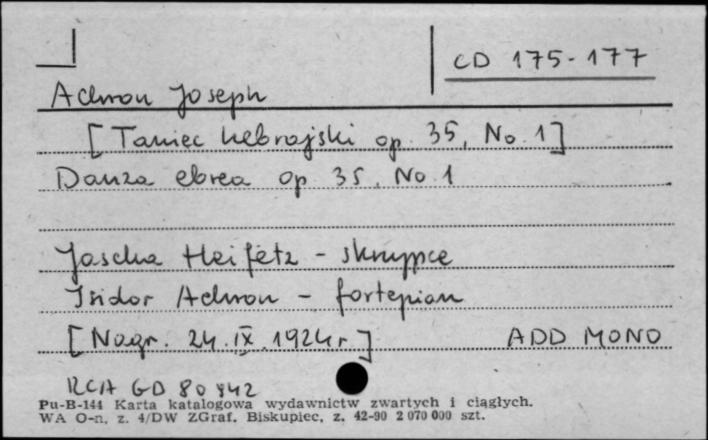 CD 175-177
Achron Joseph
[Taniec hebrajski op. 35, No. 1]
Danza ebrea op 35, No 1
Jascha Heifetz - skrzypce
Isidor Achron - fortepian
[Nagr. 24.IX.1924r.] ADD MONO
RCA GD 80942
Pu-B-144 Karta katalogowa wydawnictw zwartych i ciągłych.
WA O-n. z. 4/DW ZGraf. Biskupiec, z. 42-90 2 070 000 szt.